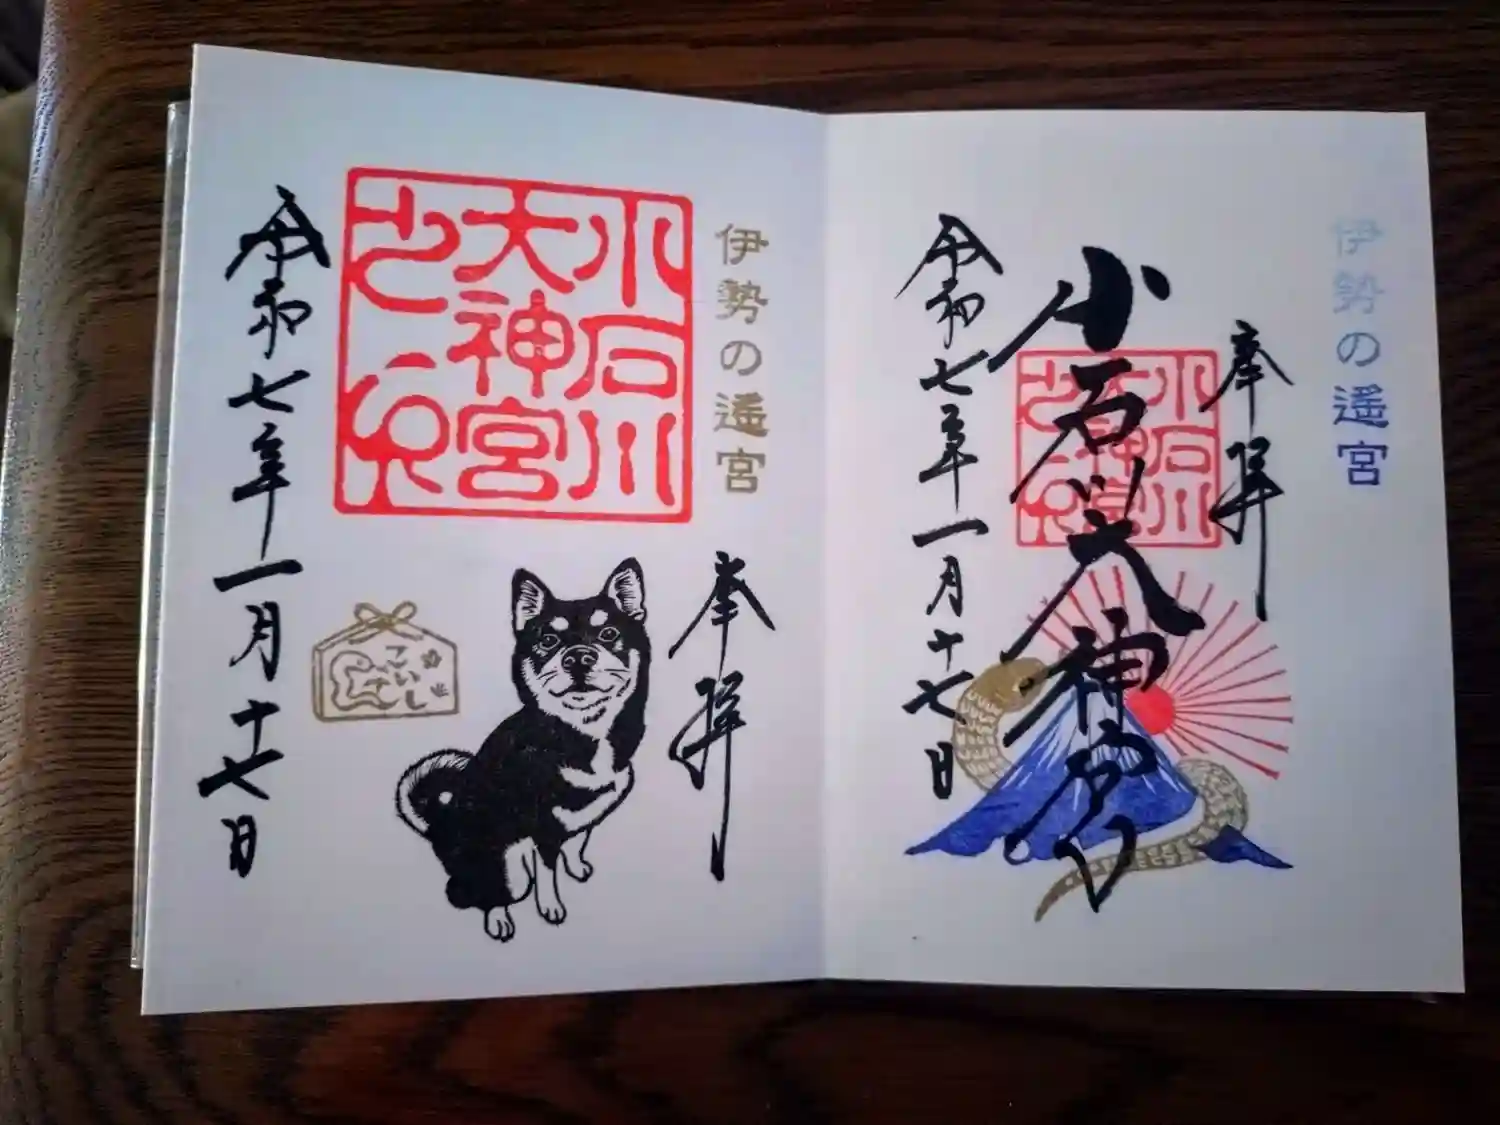 伊勢の遥宮
奉拝
小石川大神宮
小石川
大神宮
之印
令和七年一月十七日
伊勢の遥宮
小石川
大神宮
之印
奉拝
こいし
令和七年一月十七日